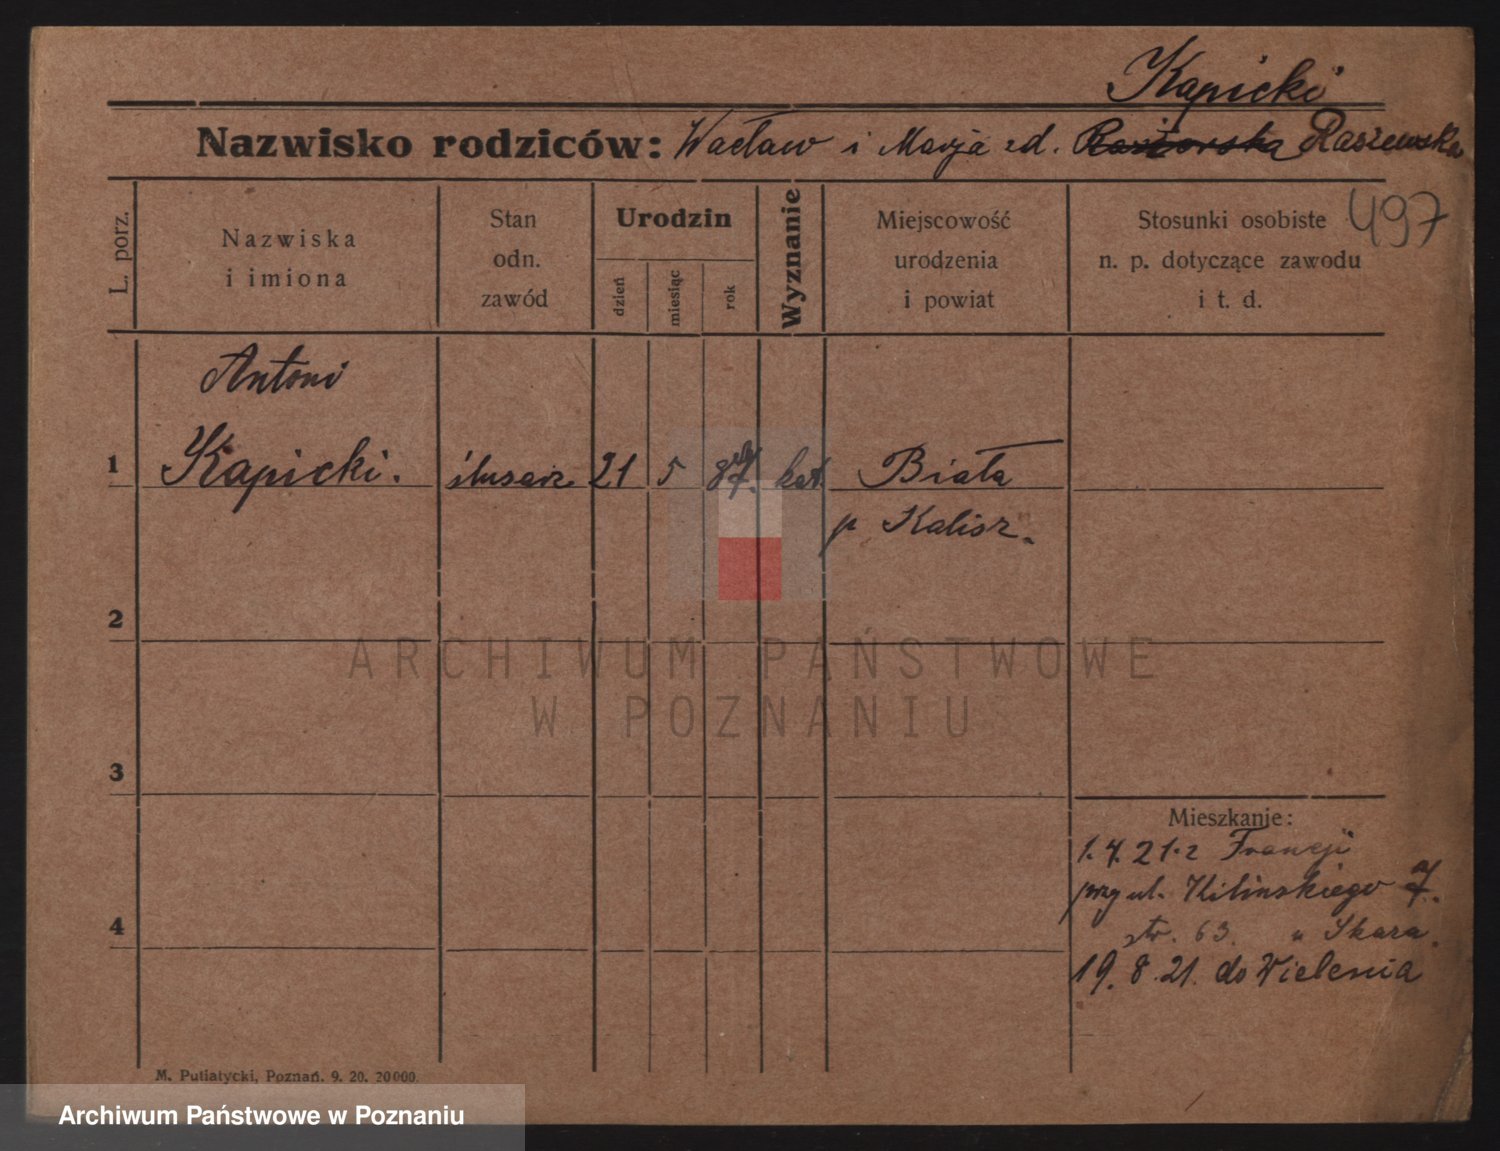 Kapicki
Nazwisko rodziców: Wacław i Marja zd. Raszewska
497
L. porz.
Nazwiska
i imiona
Stan
odn.
zawód
Urodzin
dzień
miesiąc
rok
Wyznanie
Miejscowość
urodzenia
i powiat
Stosunki osobiste
n. p. dotyczące zawodu
i t. d.
Antoni
1 Kapicki. ślusarz 21 5 87. kat. Biała
p Kalisz.
2
ARCHIWUM PAŃSTWOWE
W POZNANIU
3
Mieszkanie:
1.4.21. z Francji
przy ul. Kilinskiego 7.
4
str. 63. " Skara.
19.8.21. do Wielenia
M. Putiatycki, Poznań. 9. 20. 20000.
Archiwum Państwowe w Poznaniu